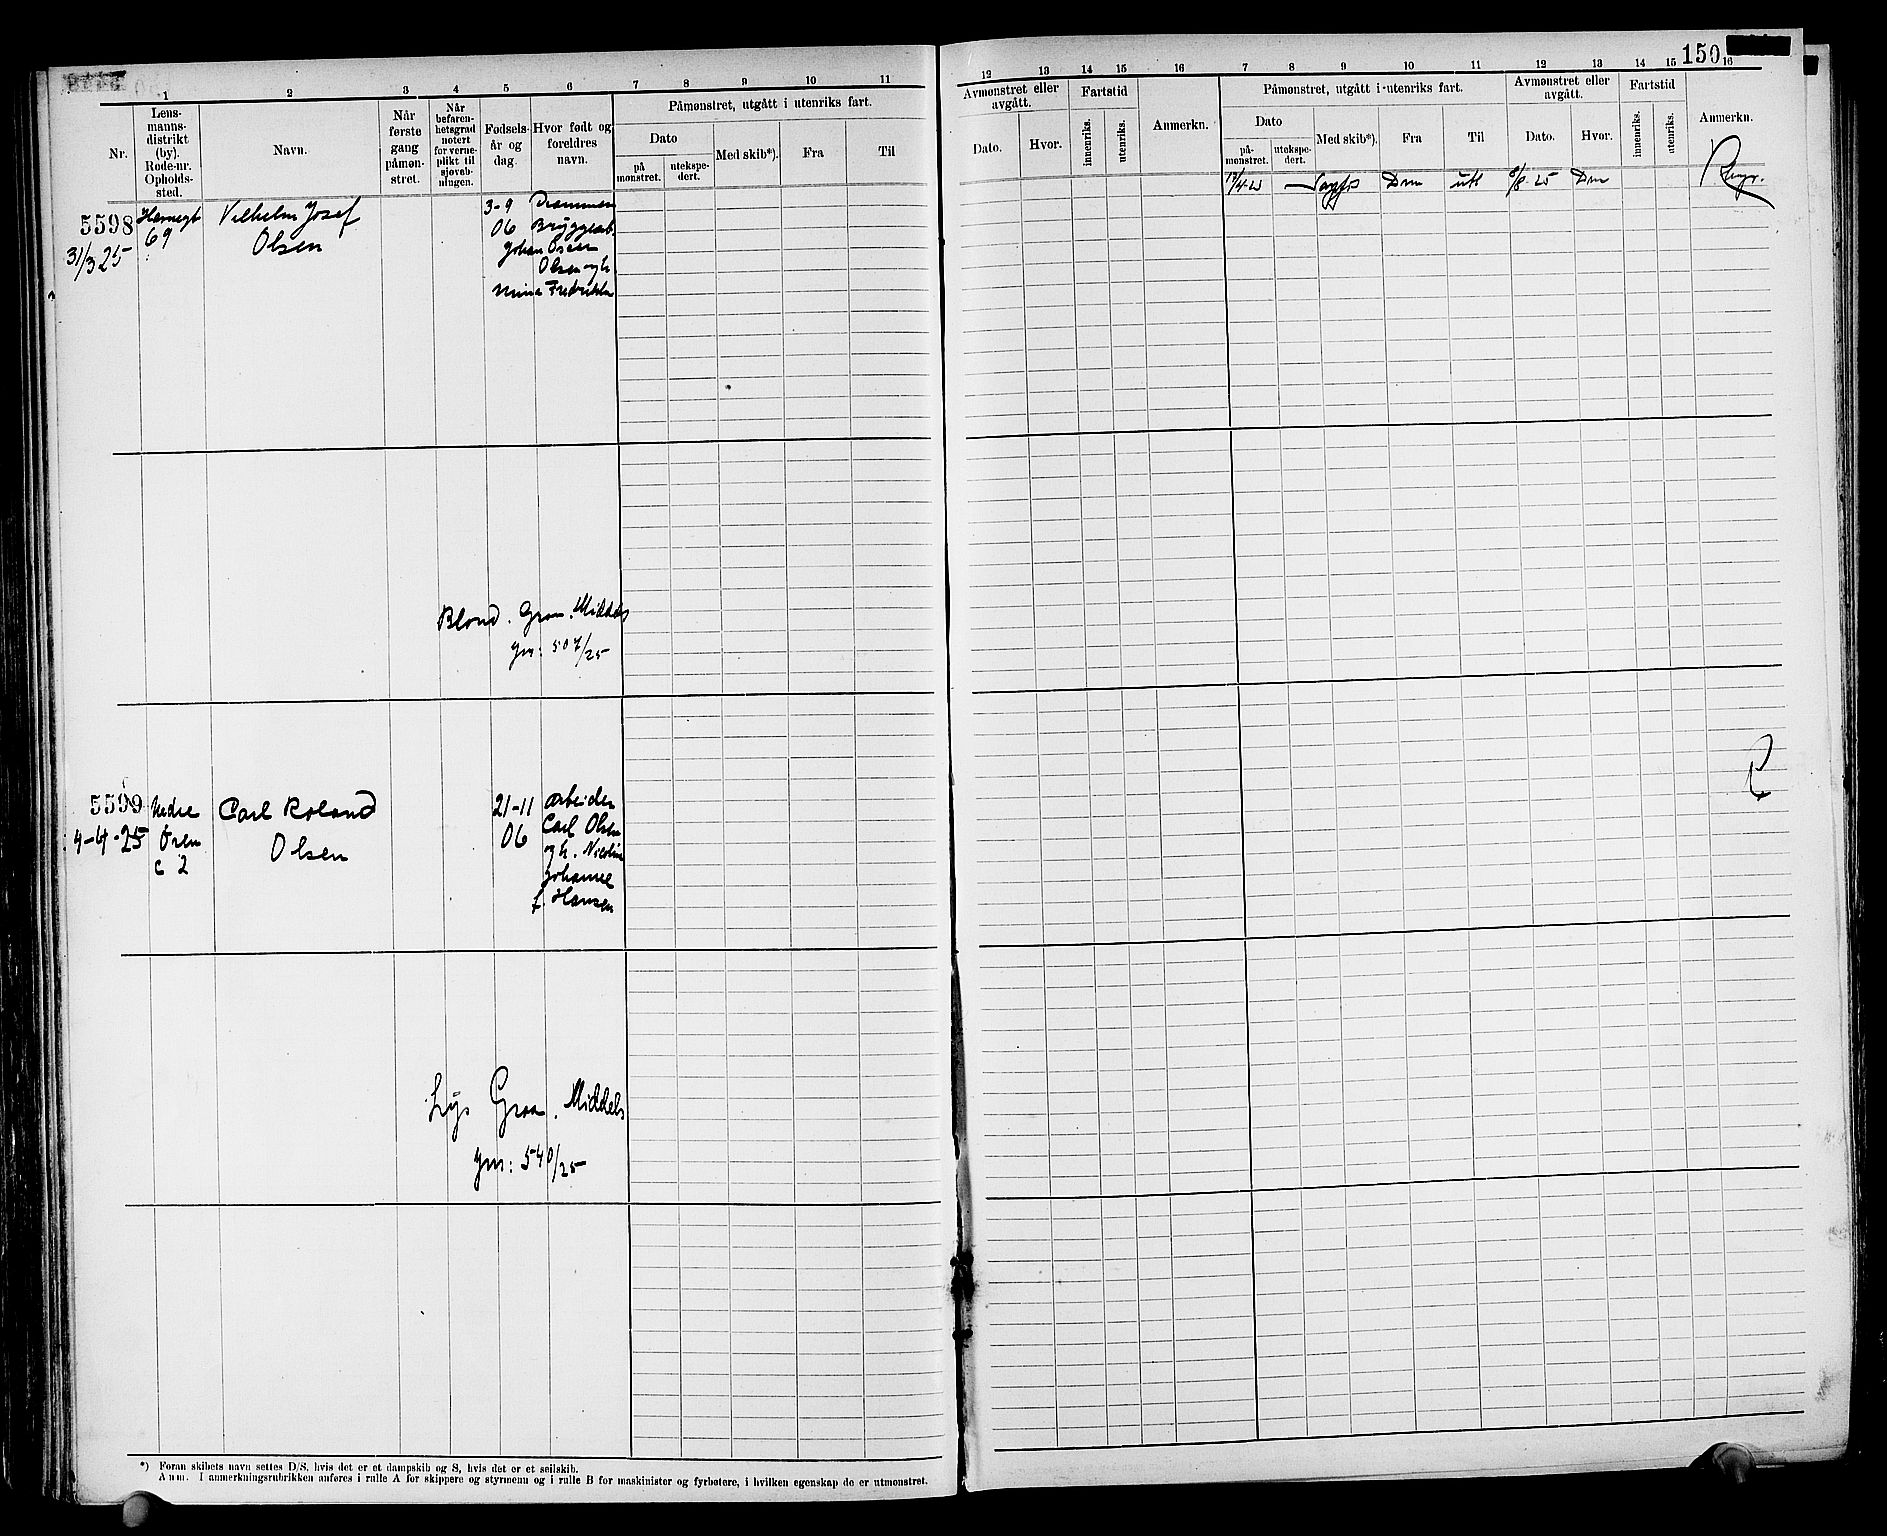 150
1 2 3 4 5 6 7 8 9 10 11
12 13 14 15 16 7 8 9 10 11 12 13 14 15 16
Nr.
Lens-
manns-
distrikt
(by).
Rode-nr.
Opholds-
sted.
Navn.
Når
første
gang
påmøn-
stret.
Når
befaren-
hetsgrad
notert
for verne-
plikt til
sjøveb-
ningen.
Fødsels-
år og
dag.
Hvor født og
foreldres
navn.
Påmønstret, utgått i utenriks fart.
Dato
på
mønstret.
utekspe-
dert.
Med skib*).
Fra
Til
Avmønstret eller
avgått.
Dato.
Hvor.
Fartstid
innenriks.
utenriks.
Anmerkn.
Påmønstret, utgått i utenriks fart.
Dato
på-
mønstret.
utekspe-
dert.
Med skib*).
Fra
Til
Avmønstret eller
avgått.
Dato.
Hvor.
Fartstid
innenriks.
utenriks.
Anmerkn.
5598
31/3 25
69
Vilhelm Josef
Olsen
3-9
06
Drammen
Johan Oscar
Olsen og h.
Mina Fredrikke
Drm utl 8/8-25 Drm
Blond. Graa. Middels
Jm: 507/25
5599
4-4-25
Nedre
Øren
C 2
Carl Roland
Olsen
21-11
06
Arbeider
Carl Olsen
og h. Nicoline
Johanne
f. Hansen
R
Lys Graa. Middels
Jm: 540/25
*) Foran skibets navn settes D/S, hvis det er et dampskib og S, hvis det er et seilskib.
Anm. I anmerkningsrubrikken anføres i rulle A for skippere og styrmenn og i rulle B for maskinister og fyrbøtere, i hvilken egenskap de er utmonstret.